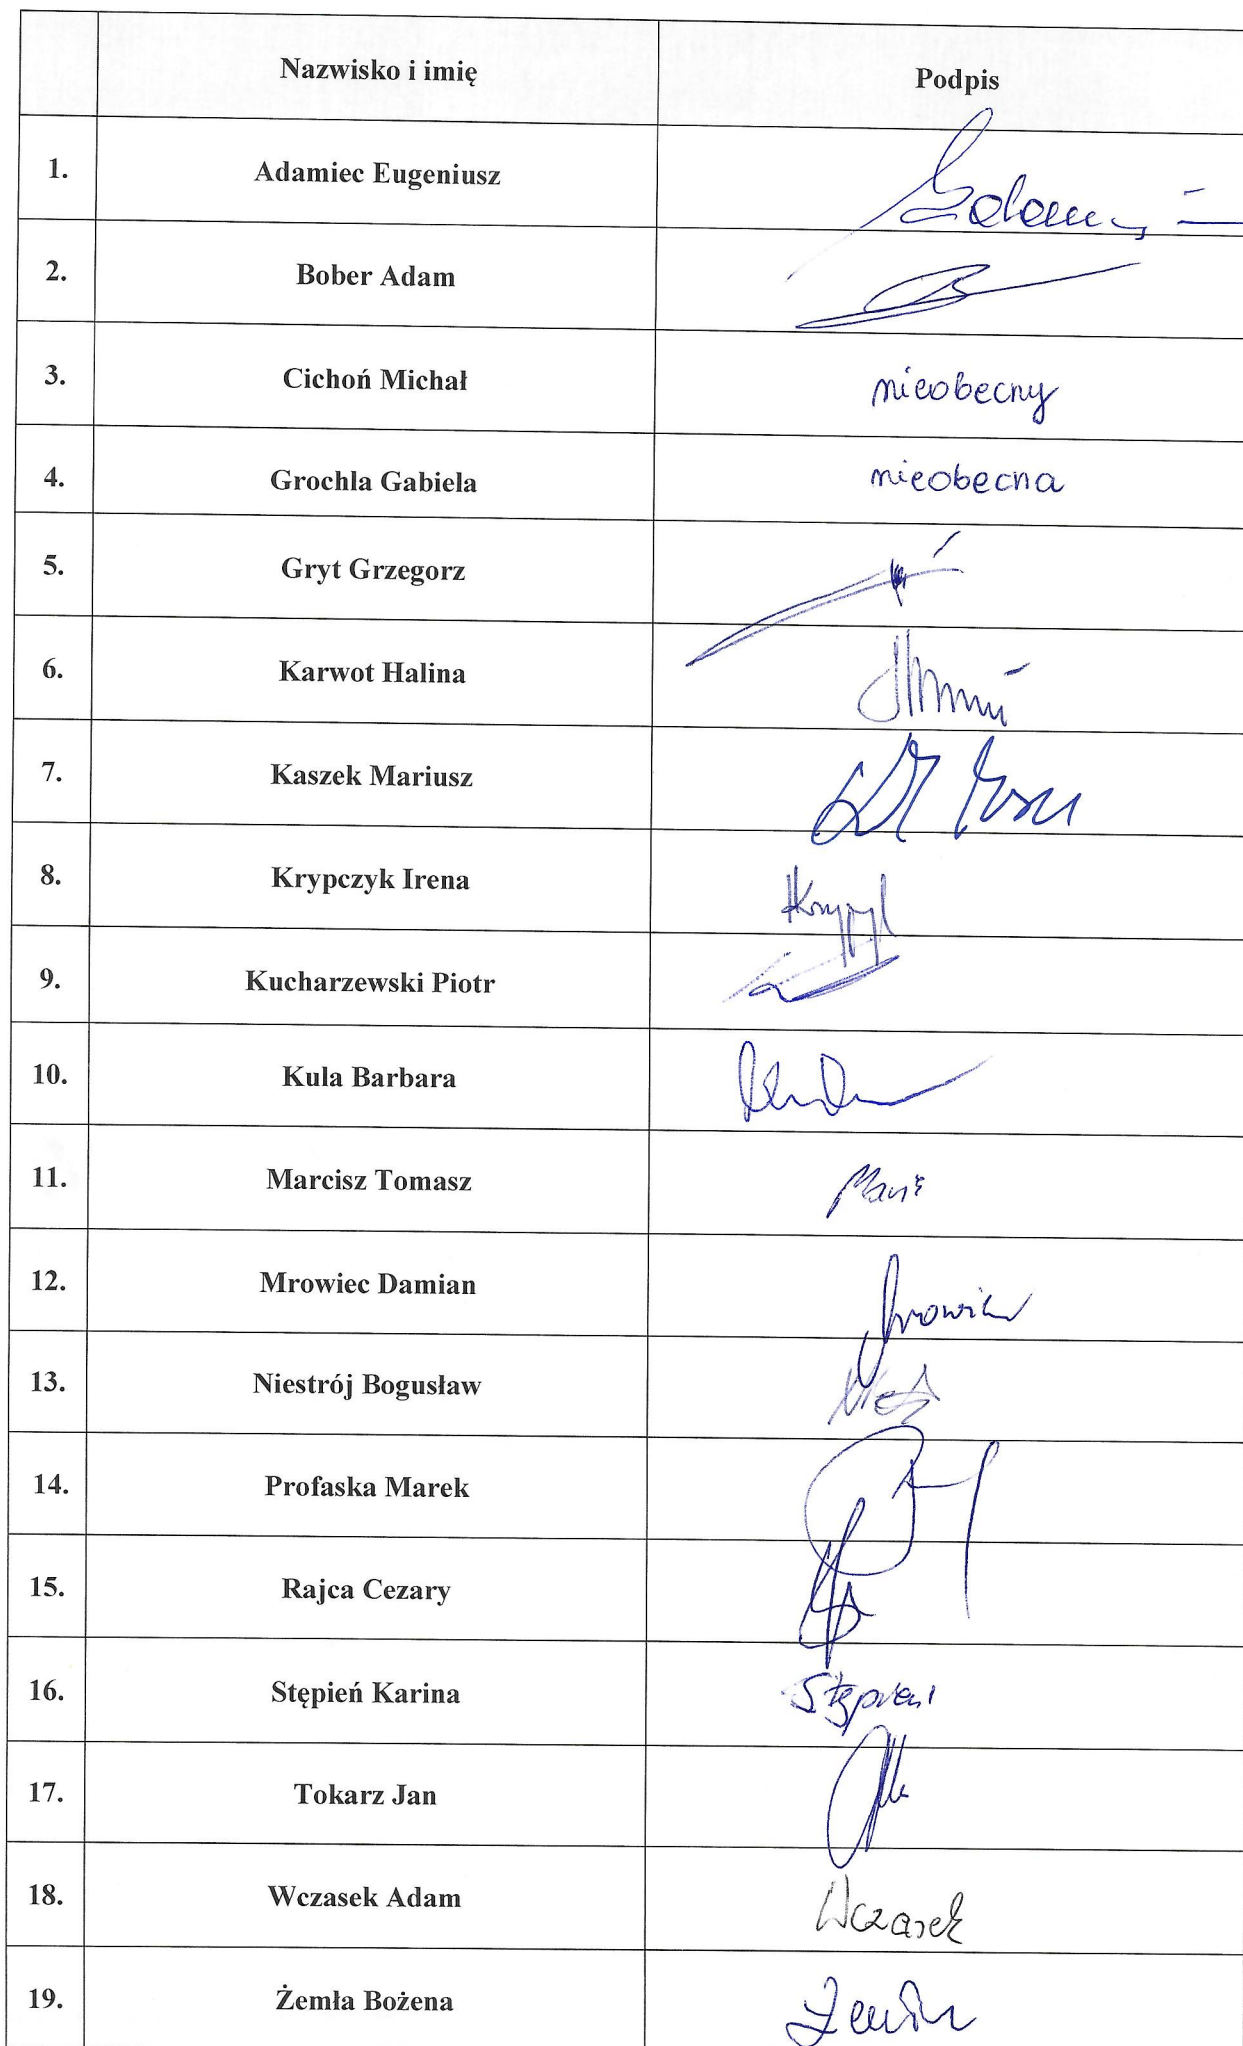 Nazwisko i imię Podpis
1. Adamiec Eugeniusz
2. Bober Adam
3. Cichoń Michał nieobecny
4. Grochla Gabiela nieobecna
5. Gryt Grzegorz
6. Karwot Halina
7. Kaszek Mariusz
8. Krypczyk Irena
9. Kucharzewski Piotr
10. Kula Barbara
11. Marcisz Tomasz
12. Mrowiec Damian
13. Niestrój Bogusław
14. Profaska Marek
15. Rajca Cezary
16. Stępień Karina Stępień
17. Tokarz Jan
18. Wczasek Adam Wczasek
19. Żemła Bożena